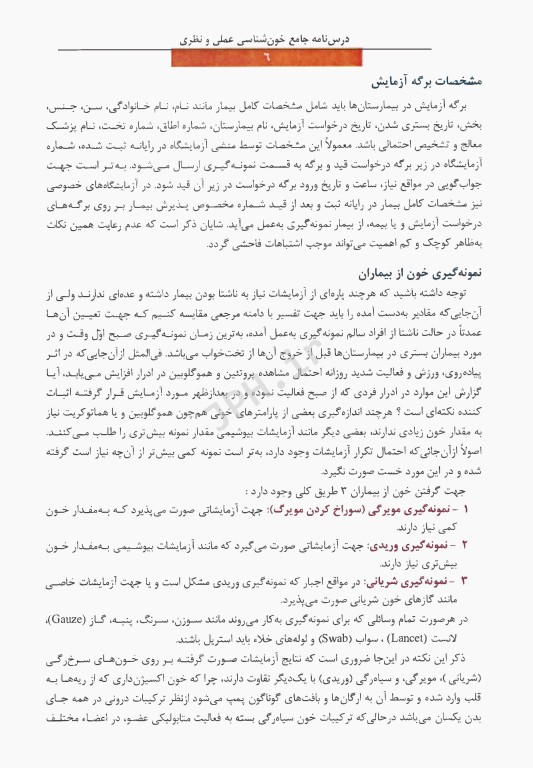 درس‌نامه جامع خون‌شناسی عملی و نظری
۶
مشخصات برگه آزمایش
برگه آزمایش در بیمارستان‌ها باید شامل مشخصات کامل بیمار مانند نـام، نـام خـانوادگی، سـن، جـنس،
بخش، تاریخ بستری شدن، تاریخ درخواست آزمایش، نام بیمارستان، شماره اطاق، شماره تخـت، نـام پزشـک
معالج و تشخیص احتمالی باشد. معمولاً این مشخصات توسط منشی آزمایشگاه در رایانـه ثبـت شـده، شـماره
آزمایشگاه در زیر برگه درخواست قید و برگه به قسـمت نمونـه‌گیـری ارسـال مـی‌شـود. بـه‌تـر اسـت جهـت
جواب‌گویی در مواقع نیاز، ساعت و تاریخ ورود برگه درخواست در زیر آن قید شود. در آزمایشگاه‌های خصوصی
نیز مشخصات کامل بیمار در رایانه ثبت و بعد از قیـد شـماره مخصـوص پـذیرش بیمـار بـر روی برگـه‌هـای
درخواست آزمایش و یا بیمه، از بیمار نمونه‌گیری به‌عمل می‌آید. شایان ذکر است که عدم رعایت همین نکات
به‌ظاهر کوچک و کم اهمیت می‌تواند موجب اشتباهات فاحشی گردد.
نمونه‌گیری خون از بیماران
توجه داشته باشید که هرچند پاره‌ای از آزمایشات نیاز به ناشتا بودن بیمار داشته و عده‌ای ندارنـد ولـی از
آن‌جایی‌که مقادیر به‌دست آمده را باید جهت تفسیر با دامنه مرجعی مقایسه کنـیم کـه جهـت تعیـین آن‌هـا
عمدتاً در حالت ناشتا از افراد سالم نمونه‌گیری به‌عمل آمده، به‌ترین زمـان نمونـه‌گیـری صـبح اوّل وقـت و در
مورد بیماران بستری در بیمارستان‌ها قبل از خروج آن‌ها از تخت‌خواب می‌باشد. فی‌المثل ازآن‌جایی‌که در اثـر
پیاده‌روی، ورزش و فعالیت شدید روزانه احتمال مشاهده پروتئین و هموگلوبین در ادرار افزایش مـی‌یابـد، آیـا
گزارش این موارد در ادرار فردی که از صبح فعالیت نموده و در بعدازظهر مـورد آزمـایش قـرار گرفتـه اثبـات
کننده نکته‌ای است ؟ هرچند اندازه‌گیری بعضی از پارامترهای خونی هم‌چون هموگلوبین و یا هماتوکریت نیاز
به مقدار خون زیادی ندارند، بعضی دیگر مانند آزمایشات بیوشیمی مقدار نمونه بیش‌تری را طلـب مـی‌کننـد.
اصولاً ازآن‌جائی‌که احتمال تکرار آزمایشات وجود دارد، به‌تر است نمونه کمی بیش‌تر از آن‌چه نیاز است گرفته
شده و در این مورد خست صورت نگیرد.
جهت گرفتن خون از بیماران ۳ طریق کلی وجود دارد :
۱ –نمونه‌گیری مویرگی (سوراخ کردن مویرگ): جهت آزمایشاتی صورت می‌پذیرد کـه بـه‌مقـدار خـون
کمی نیاز دارند.
۲ –نمونه‌گیری وریدی: جهت آزمایشاتی صورت می‌گیرد که مانند آزمایشات بیوشـیمی بـه‌مقـدار خـون
بیش‌تری نیاز دارند.
۳ –نمونه‌گیری شریانی: در مواقع اجبار که نمونه‌گیری وریدی مشکل است و یا جهت آزمایشات خاصـی
مانند گازهای خون شریانی صورت می‌پذیرد.
در هرصورت تمام وسائلی که برای نمونه‌گیری به‌کار می‌روند مانند سـوزن، سـرنگ، پنبـه، گـاز (Gauze)،
لانست (Lancet) ، سواب (Swab) و لوله‌های خلاء باید استریل باشند.
ذکر این نکته در این‌جا ضروری است که نتایج آزمایشات صـورت گرفتـه بـر روی خـون‌هـای سـرخ‌رگـی
(شریانی )، مویرگی، و سیاه‌رگی (وریدی) با یک‌دیگر تفاوت دارند، چرا که خون اکسیژن‌داری که از ریه‌هـا بـه
قلب وارد شده و توسط آن به ارگان‌ها و بافت‌های گوناگون پمپ می‌شود ازنظر ترکیبات درونی در همه جـای
بدن یکسان می‌باشد درحالی‌که ترکیبات خون سیاه‌رگی بسته به فعالیت متابولیکی عضـو، در اعضـاء مختلـف
JPH.ir